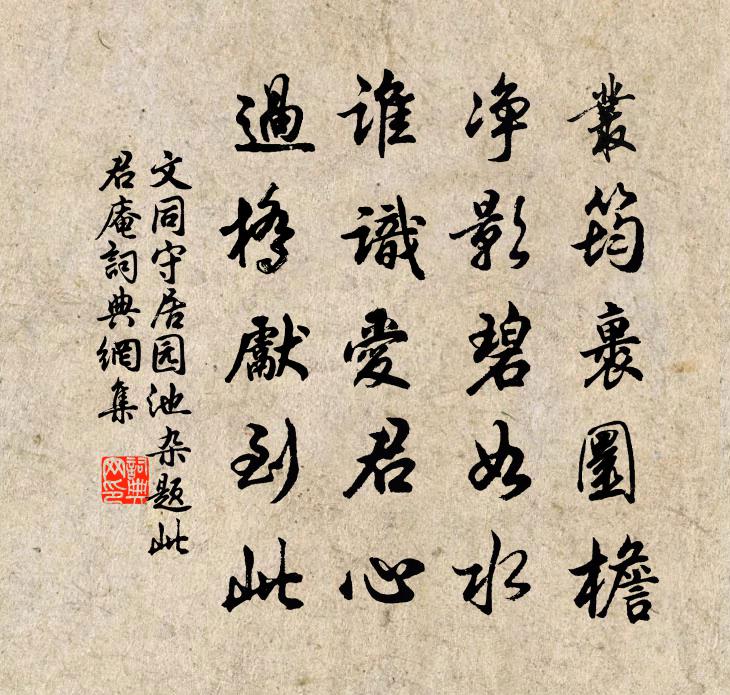 叢筠裹圓檐
净影碧如水
誰識愛君心
過橋獻到此
文同守居园池杂题此
君庵詞典網集
詞典网印